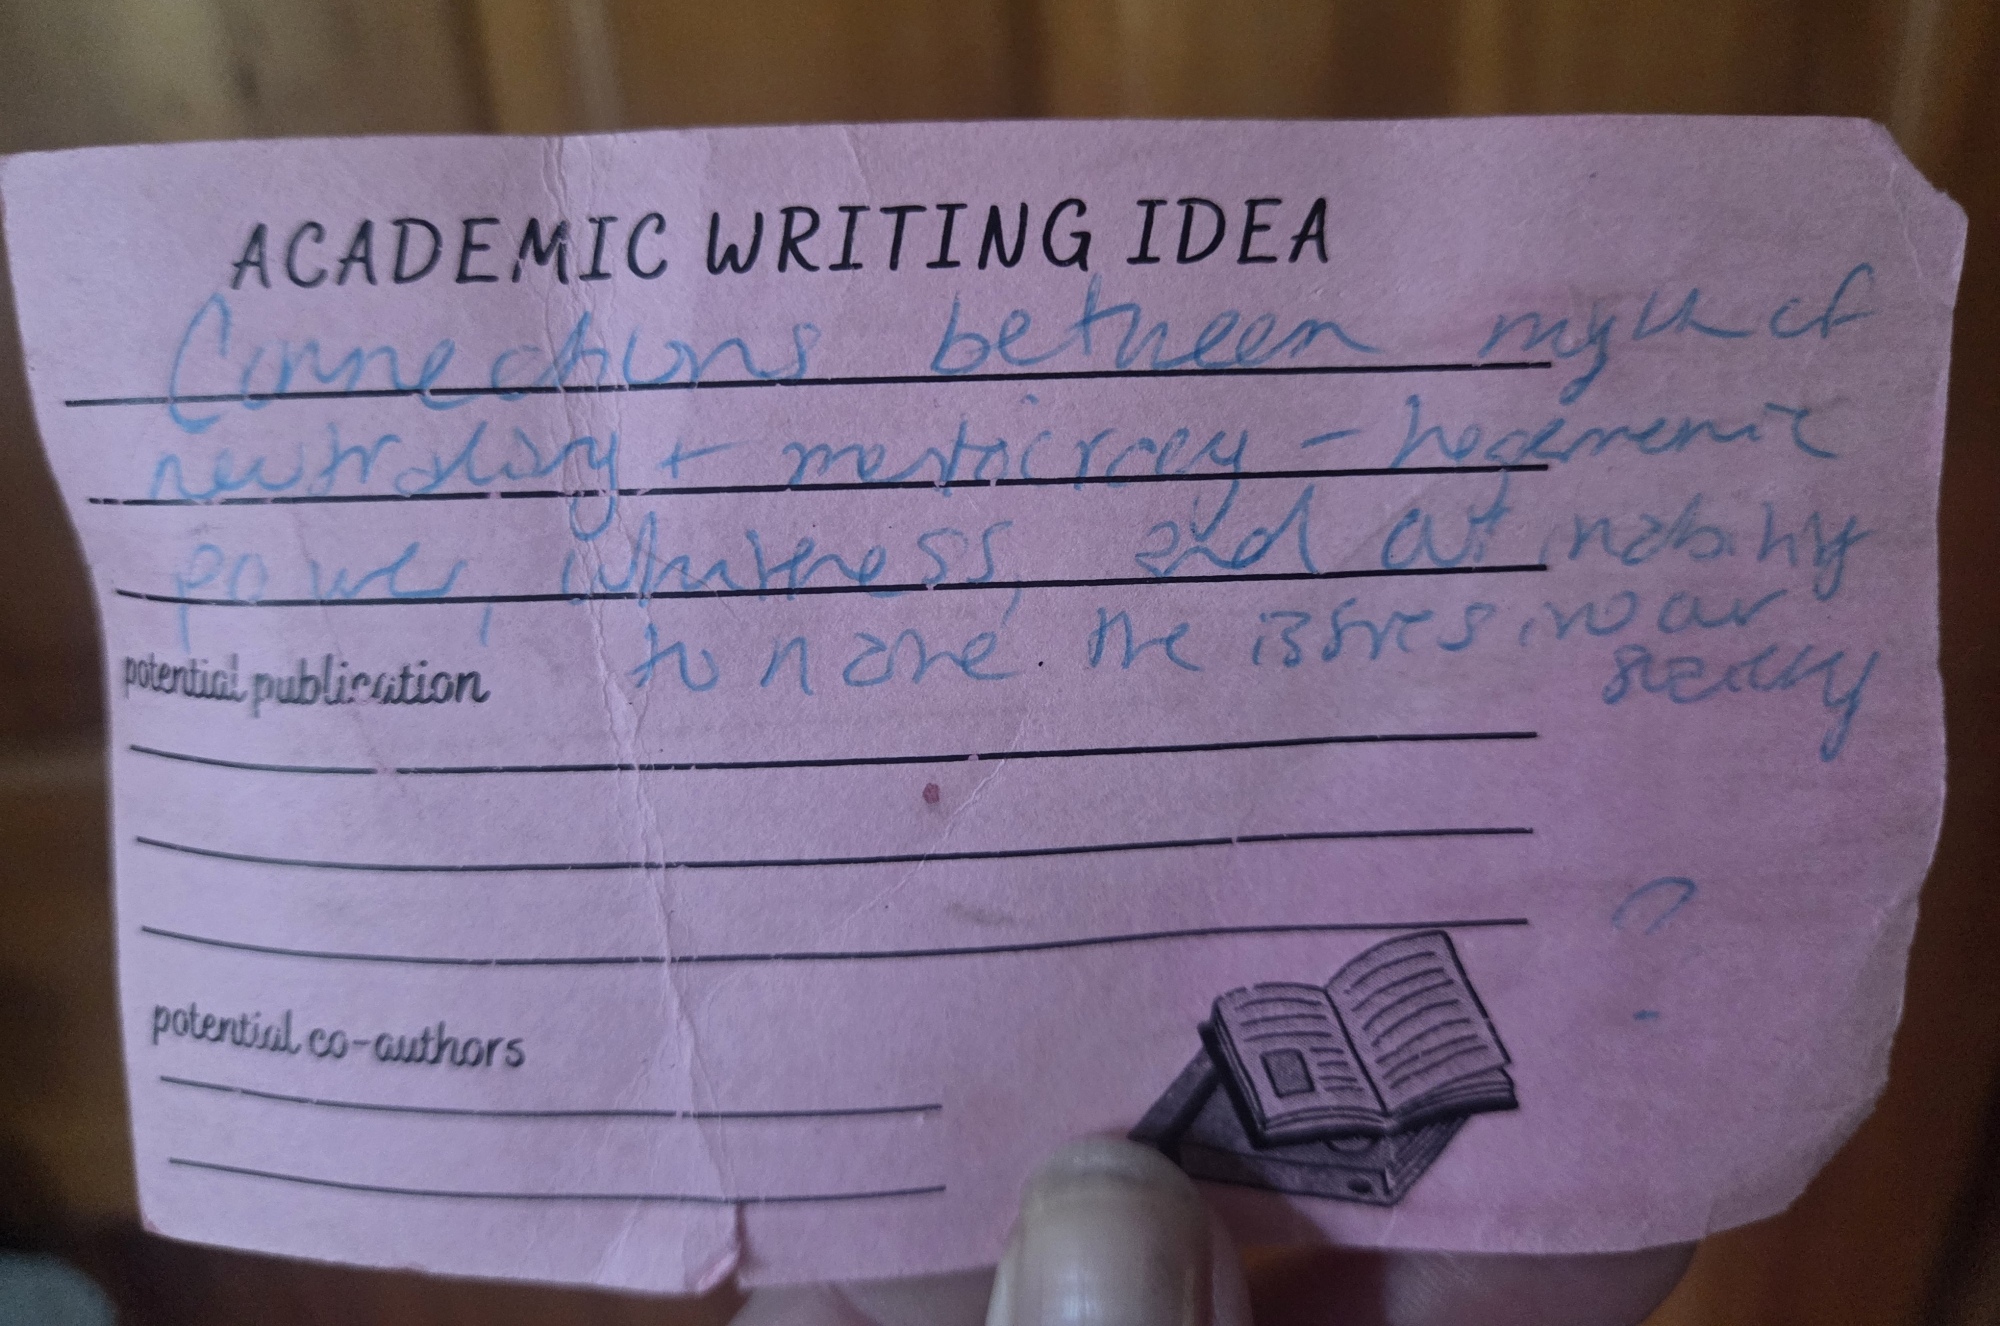 ACADEMIC WRITING IDEA
Connections between myth of
neutrality + meritocracy - hegemonic
power, whiteness, and our inability
to name the issues in our
society
potential publication
?
potential co-authors